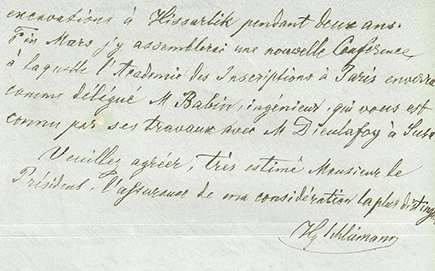 excavations à Hissarlik pendant deux ans.
Fin Mars j'y assemblerai une nouvelle Conférence
à laquelle l'Academie des Inscriptions à Paris enverra
comme délégué M Babin, ingénieur, qui vous est
connu par ses travaux avec M Dieulafoy à Suse
Veuillez agréer, très estimé Monsieur le
Président, l'assurance de ma considération la plus distinguée
Hy Schliemann